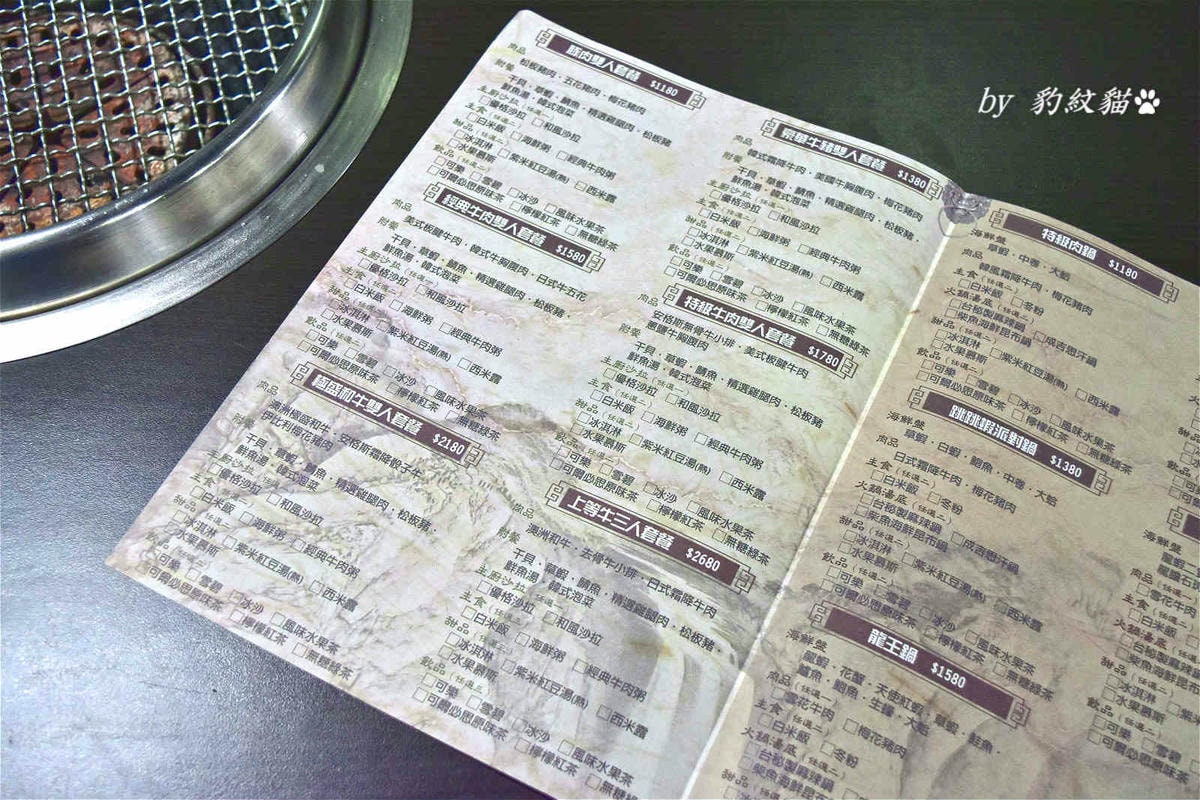 by 豹紋貓
豚肉雙人套餐 $1180
肉品
松板豬肉．五花豬肉．梅花豬肉
附餐
干貝．草蝦．鯛魚．精選雞腿肉．松板豬
鮮魚湯．韓式泡菜
主廚沙拉(任選二)
□優格沙拉 □和風沙拉
主食(任選二)
□白米飯 □海鮮粥 □經典牛肉粥
甜品(任選二)
□冰淇淋 □紫米紅豆湯(熱) □西米露
□水果慕斯
飲品(任選二)
□可樂 □雪碧 □冰沙 □風味水果茶
□可爾必思原味茶 □檸檬紅茶 □無糖綠茶
經典牛肉雙人套餐 $1580
肉品
美式板腱牛肉．韓式牛胸腹肉．日式牛五花
附餐
干貝．草蝦．鯛魚．精選雞腿肉．松板豬．
鮮魚湯．韓式泡菜
主廚沙拉(任選二)
□優格沙拉 □和風沙拉
主食(任選二)
□白米飯 □海鮮粥 □經典牛肉粥
甜品(任選二)
□冰淇淋 □紫米紅豆湯(熱) □西米露
□水果慕斯
飲品(任選二)
□可樂 □雪碧 □冰沙 □風味水果茶
□可爾必思原味茶 □檸檬紅茶 □無糖綠茶
極盛和牛雙人套餐 $2180
肉品
澳洲極盛和牛．安格斯霜降骰子牛．
伊比利梅花豬肉
附餐
干貝．草蝦．鯛魚．精選雞腿肉．松板豬．
鮮魚湯．韓式泡菜
主廚沙拉(任選二)
□優格沙拉 □和風沙拉
主食(任選二)
□白米飯 □海鮮粥 □經典牛肉粥
甜品(任選二)
□冰淇淋 □紫米紅豆湯(熱) □西米露
□水果慕斯
飲品(任選二)
□可樂 □雪碧 □冰沙 □風味水果茶
□可爾必思原味茶 □檸檬紅茶 □無糖綠茶
牛豬雙人套餐 $1380
肉品
韓式霜降牛肉．美國牛胸腹肉．梅花豬肉
附餐
干貝．草蝦．鯛魚．精選雞腿肉．松板豬．
鮮魚湯．韓式泡菜
主廚沙拉(任選二)
□優格沙拉 □和風沙拉
主食(任選二)
□白米飯 □海鮮粥 □經典牛肉粥
甜品(任選二)
□冰淇淋 □紫米紅豆湯(熱) □西米露
□水果慕斯
飲品(任選二)
□可樂 □雪碧 □冰沙 □風味水果茶
□可爾必思原味茶 □檸檬紅茶 □無糖綠茶
特級牛肉雙人套餐 $1780
肉品
安格斯無骨牛小排．美式板腱牛肉
蔥鹽牛胸腹肉
附餐
干貝．草蝦．鯛魚．精選雞腿肉．松板豬
鮮魚湯．韓式泡菜
主廚沙拉(任選二)
□優格沙拉 □和風沙拉
主食(任選二)
□白米飯 □海鮮粥 □經典牛肉粥
甜品(任選二)
□冰淇淋 □紫米紅豆湯(熱) □西米露
□水果慕斯
飲品(任選二)
□可樂 □雪碧 □冰沙 □風味水果茶
□可爾必思原味茶 □檸檬紅茶 □無糖綠茶
上等牛三人套餐 $2680
肉品
澳洲和牛．去骨牛小排．日式霜降牛肉
附餐
干貝．草蝦．鯛魚．精選雞腿肉．松板豬．
鮮魚湯．韓式泡菜
主廚沙拉(任選二)
□優格沙拉 □和風沙拉
主食(任選二)
□白米飯 □海鮮粥 □經典牛肉粥
甜品(任選二)
□冰淇淋 □紫米紅豆湯(熱) □西米露
□水果慕斯
飲品(任選三)
□可樂 □雪碧 □冰沙 □風味水果茶
□可爾必思原味茶 □檸檬紅茶 □無糖綠茶
特級肉鍋 $1180
海鮮盤
草蝦．中卷．大蛤
肉品
韓風霜降牛肉．梅花豬肉
主食(任選二)
□白米飯 □冬粉
火鍋湯底(任選二)
□台秘製麻辣鍋 □成吉思汗鍋
□柴魚海鮮昆布鍋
甜品(任選二)
□冰淇淋 □紫米紅豆湯(熱) □西米露
□水果慕斯
飲品(任選二)
□可樂 □雪碧 □冰沙 □風味水果茶
□可爾必思原味茶 □檸檬紅茶 □無糖綠茶
跳跳蝦派對鍋 $1380
海鮮盤
草蝦．白蝦．鮑魚．中卷．大蛤
肉品
日式霜降牛肉．梅花豬肉
主食(任選二)
□白米飯 □冬粉
火鍋湯底(任選二)
□台秘製麻辣鍋 □成吉思汗鍋
□柴魚海鮮昆布鍋
甜品(任選二)
□冰淇淋 □紫米紅豆湯(熱) □西米露
□水果慕斯
飲品(任選二)
□可樂 □雪碧 □冰沙 □風味水果茶
□可爾必思原味茶 □檸檬紅茶 □無糖綠茶
龍王鍋 $1580
海鮮盤
龍蝦．花蟹．天使紅蝦．草蝦．鮭魚．
鱸魚．鮑魚．生蠔．大蛤
肉品
□雪花牛肉 □梅花豬肉
主食(任選二)
□白米飯 □冬粉
火鍋湯底(任選二)
□台秘製麻辣鍋
□柴魚海鮮昆布鍋
甜品
海鮮盤
肉品
□雪花牛肉
主食(任選二)
□白米飯
火鍋湯底
□台秘製麻辣
□柴魚海鮮昆
甜品(任選二)
□冰淇淋
□水果慕斯
飲品(任選二)
□可樂
□可爾必思